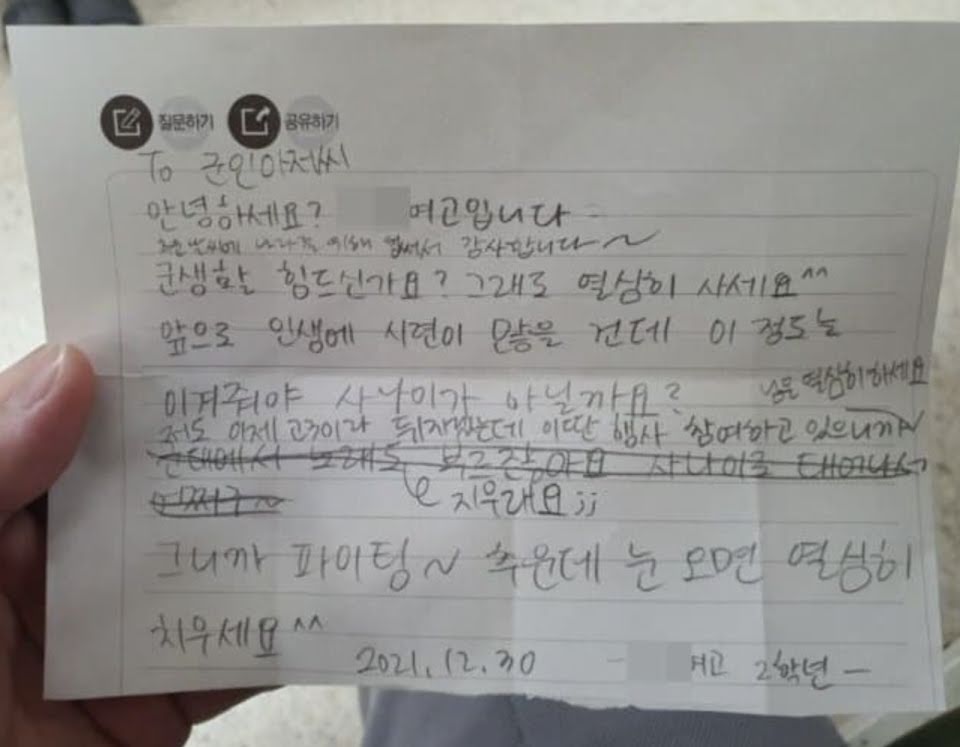 질문하기 공유하기
To 군인아저씨
안녕하세요? 여고입니다
추운 날씨에 나라를 위해 힘써서 감사합니다~
군생활 힘드신가요? 그래도 열심히 사세요^^
앞으로 인생에 시련이 많을 건데 이 정도는
이겨줘야 사나이가 아닐까요?
저도 이제 고3이라 뒤지겠는데 이딴 행사 참여하고 있으니까~
님은 열심히하세요
군대에서 노래도 부르잖아요 사나이로 태어나서
어쩌구~
지우래요;;
그니까 파이팅~ 추운데 눈 오면 열심히
치우세요^^
2021.12.30 - 여고 2학년 -